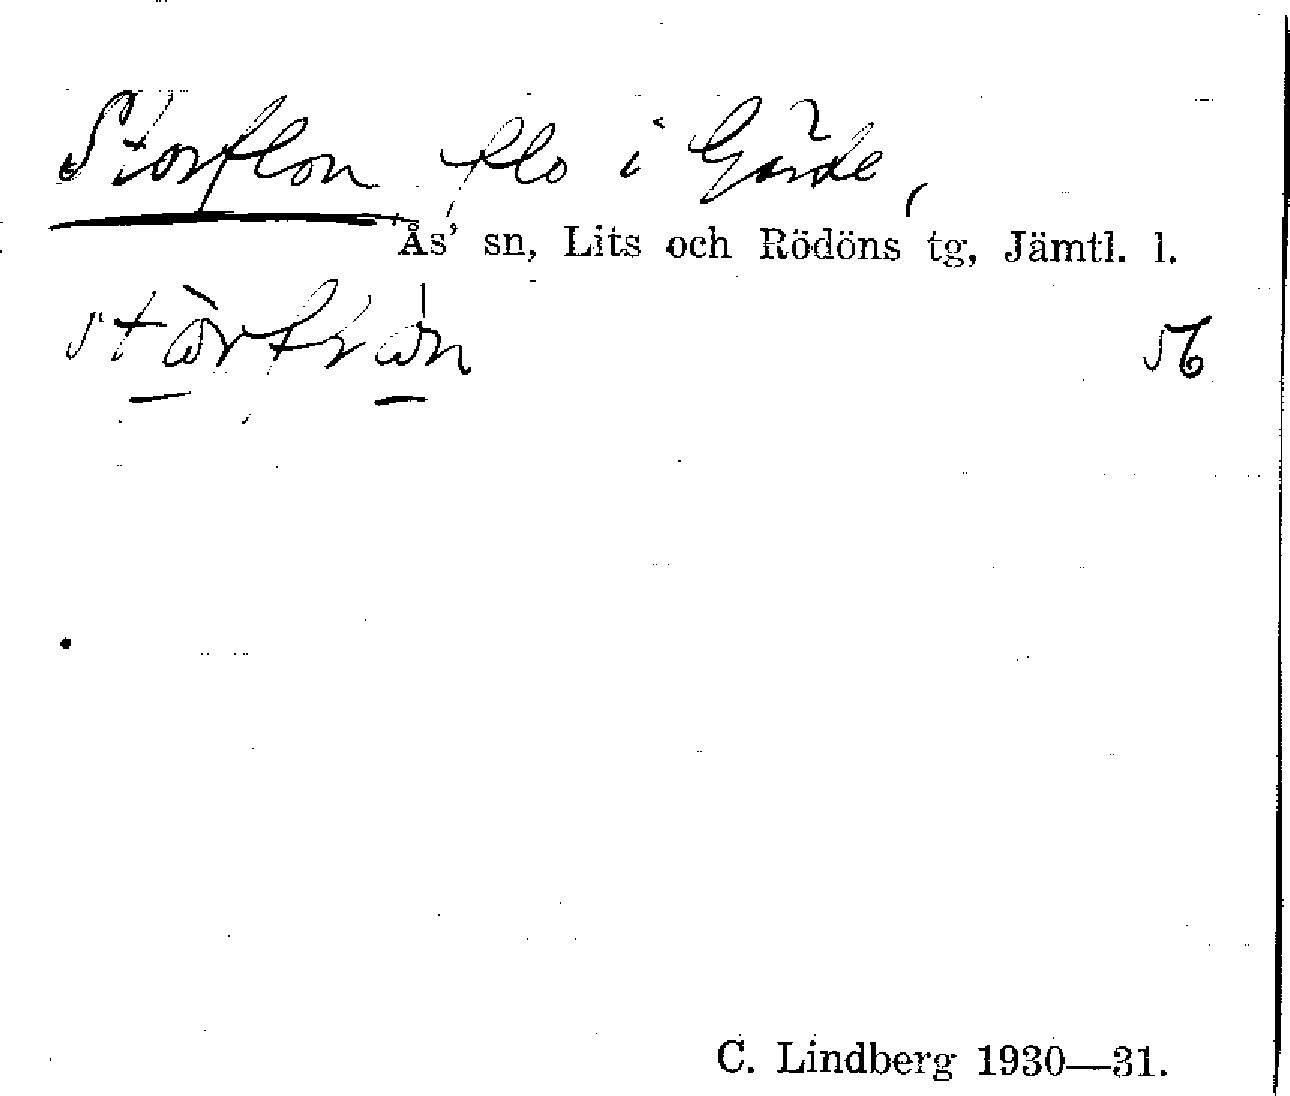 Storflon flo i Gärde,
Ås' sn, Lits och Rödöns tg, Jämtl. l.
56
C. Lindberg 1930—31.